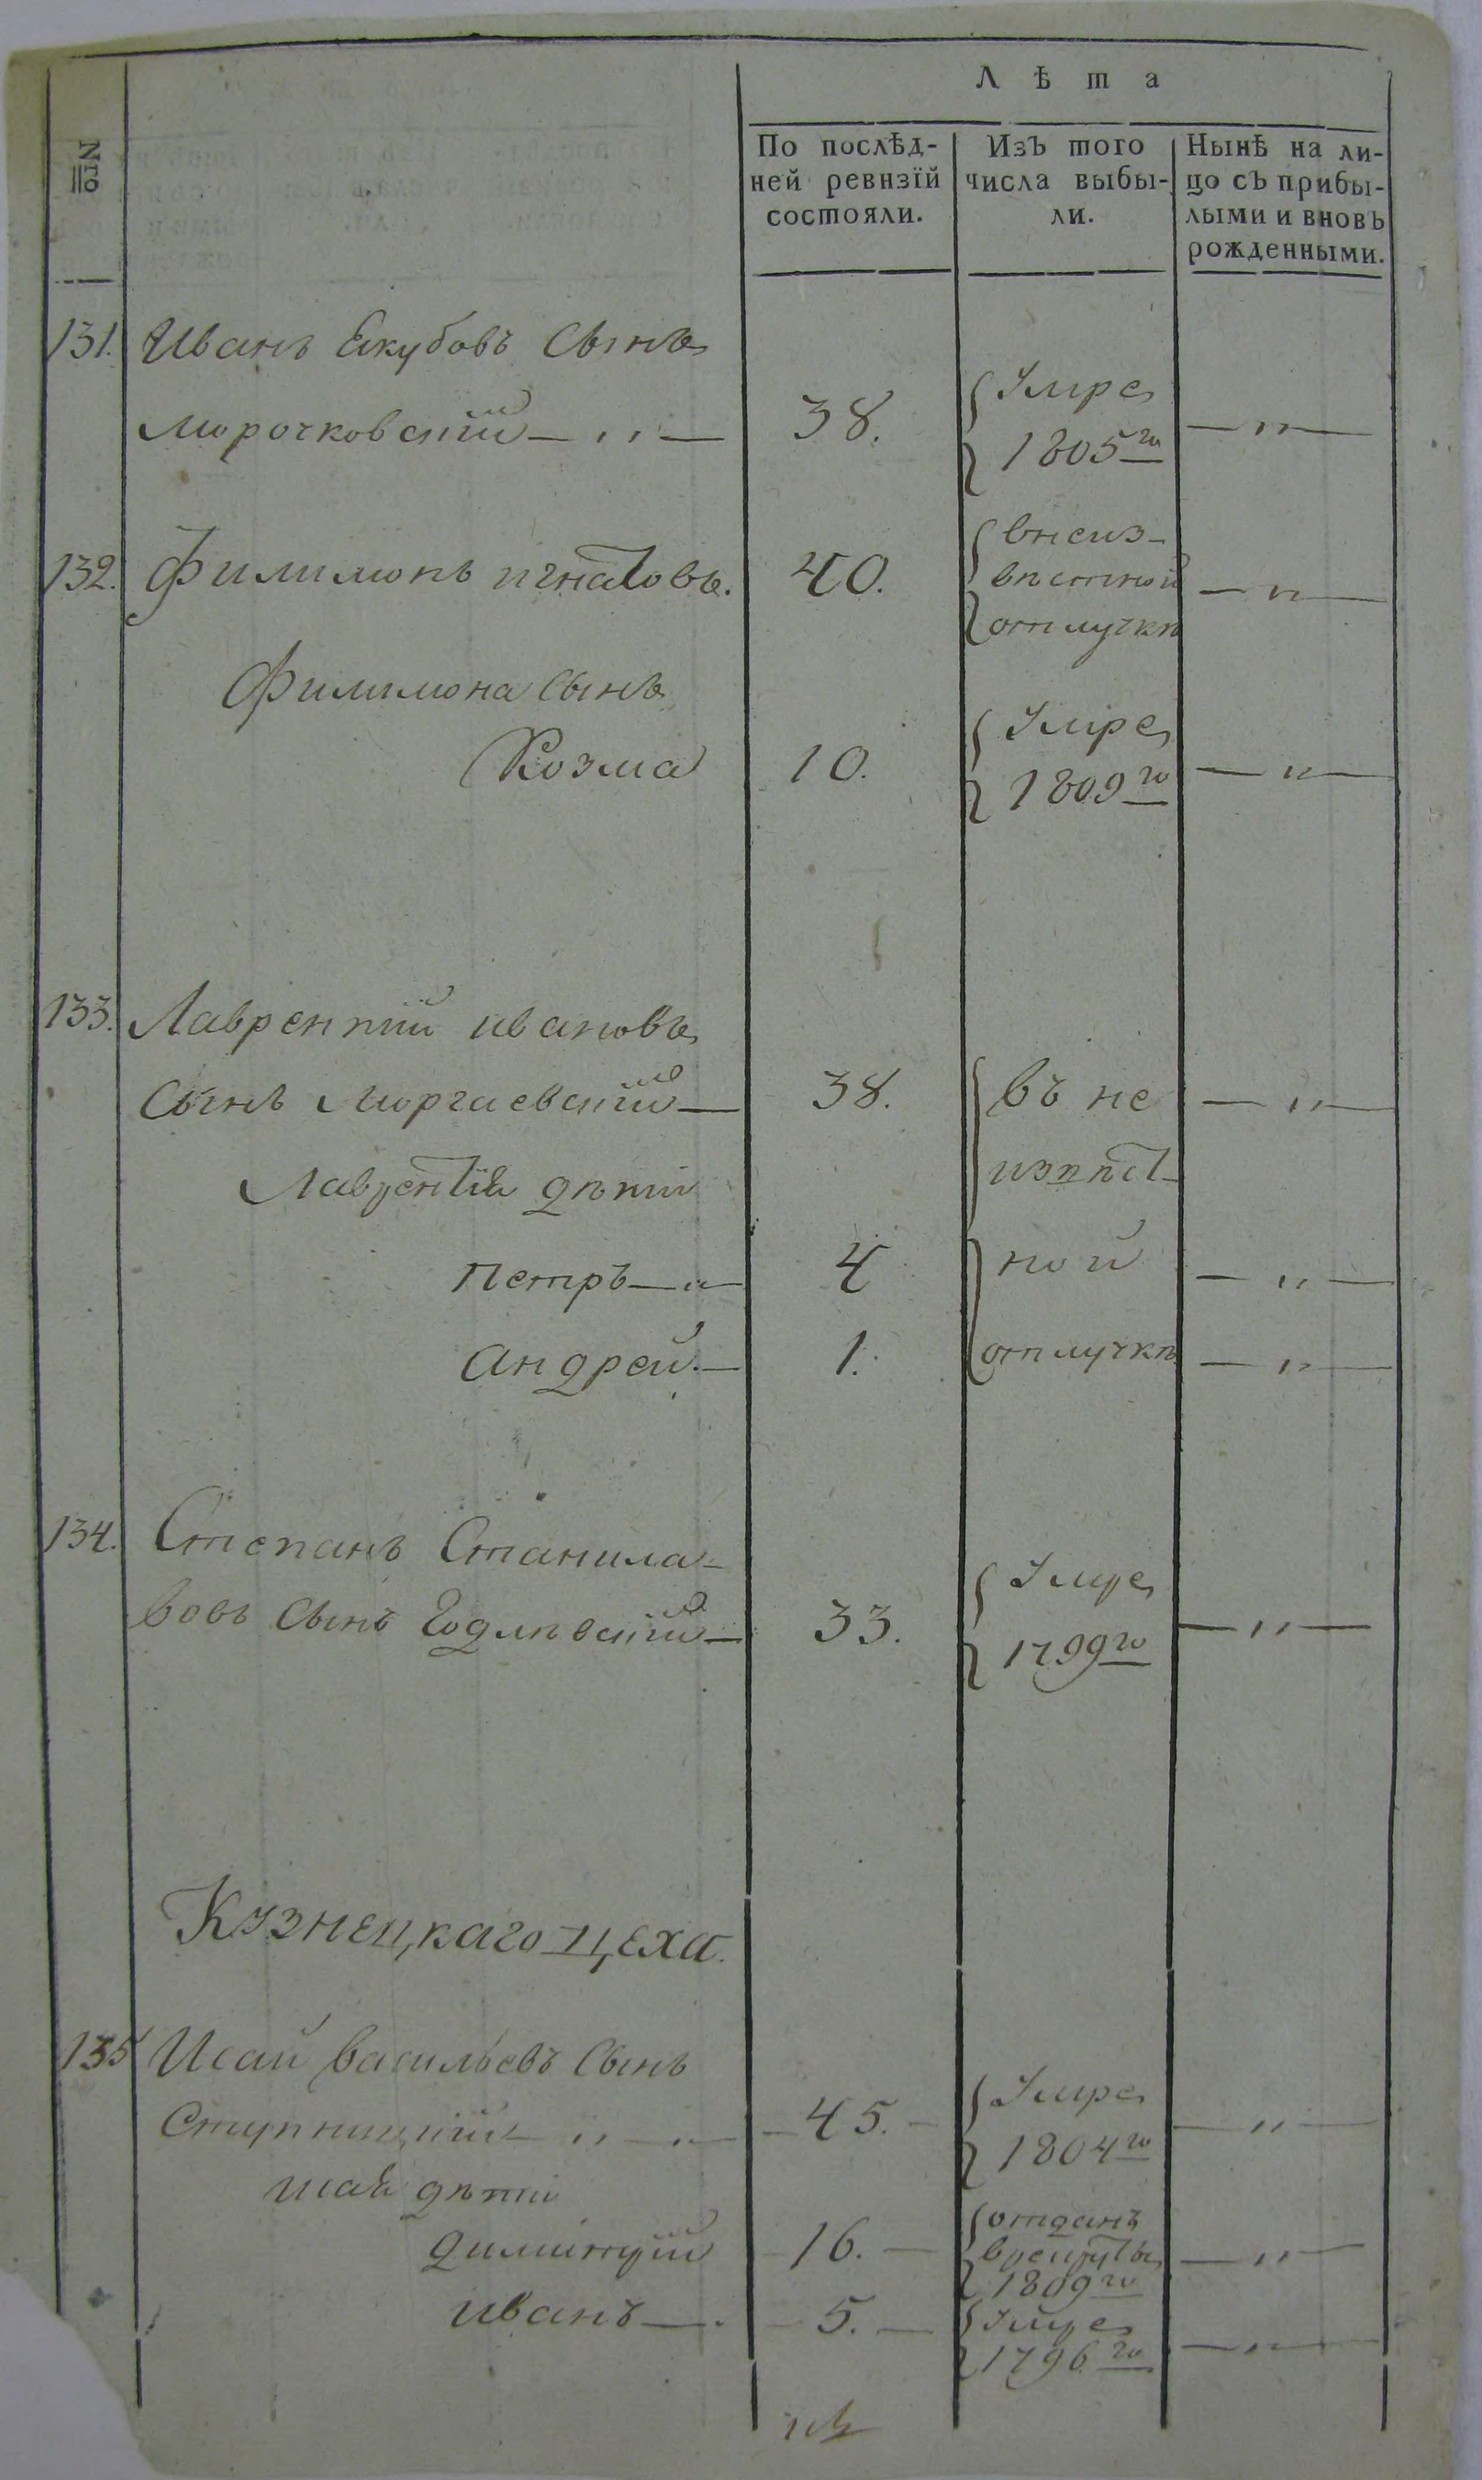 Лѣта
Nго
По послѣд-
ней ревизїй
состояли.
Изъ того
числа выбы-
ли.
Нынѣ на ли-
цо съ прибы-
лыми и вновь
рожденными.
131. Иванъ Екубовъ Сынъ
Морочковский — ,, —
38.
Умре
1805го
— ,, —
132. Филимонъ игнатовъ.
40.
внеиз-
вѣстной
отлучкѣ
— ,, —
Филимона Сынъ
Козма
10.
Умре
1809го
— ,, —
133. Лаврентий ивановъ
Сынъ Моргаевский —
38.
въ не
— ,, —
извѣст-
Лаврентїя дѣти
Петръ — ,, —
4
ной
— ,, —
андрей. —
1.
отлучкѣ
— ,, —
134. Степанъ Станисла-
вовъ Сынъ —
33.
Умре
1799го
— ,, —
Кузнецкаго цеха.
135 Исай васильевъ Сынъ
Ступницкий — ,, — ,, —
45.
Умре
1804го
— ,, —
исая дѣти
димитрий
16. —
отданъ
врекруты
1809го
— ,, —
иванъ —.
5. —
Умре
1796го
— ,, —